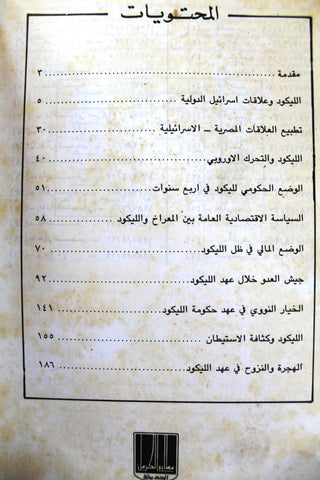 المحتويات
مقدمة ........................ ٣
الليكود وعلاقات اسرائيل الدولية ........................ ٥
تطبيع العلاقات المصرية ــ الاسرائيلية ........................ ٣٠
الليكود والتحرك الاوروبي ........................ ٤٠
الوضع الحكومي لليكود في اربع سنوات ........................ ٥١
السياسة الاقتصادية العامة بين المعراخ والليكود ........................ ٥٨
الوضع المالي في ظل الليكود ........................ ٧٠
جيش العدو خلال عهد الليكود ........................ ٩٢
الخيار النووي في عهد حكومة الليكود ........................ ١٤١
الليكود وكثافة الاستيطان ........................ ١٥٥
الهجرة والنزوح في عهد الليكود ........................ ١٨٦
الحديثة